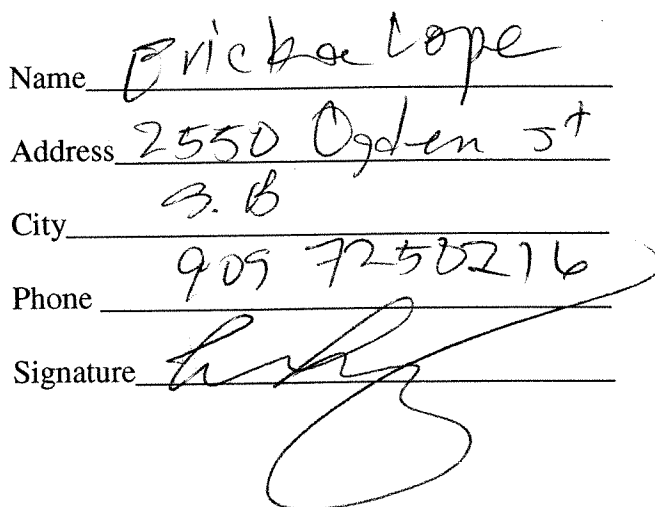 Name Ericka Lope
Address 2550 Ogden st
City S. B
Phone 909 7250216
Signature